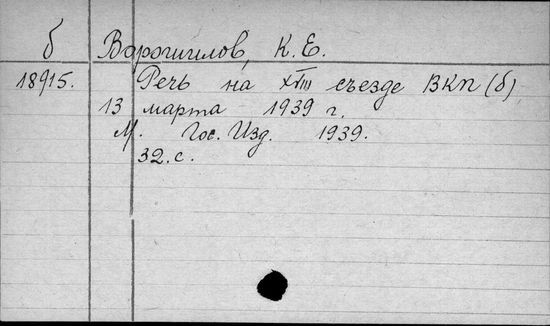 б Ворошилов, К. Е.
18915. Речь на XVIII съезде ВКП(б)
13 марта 1939 г.
М. Гос. Изд. 1939.
32. с.